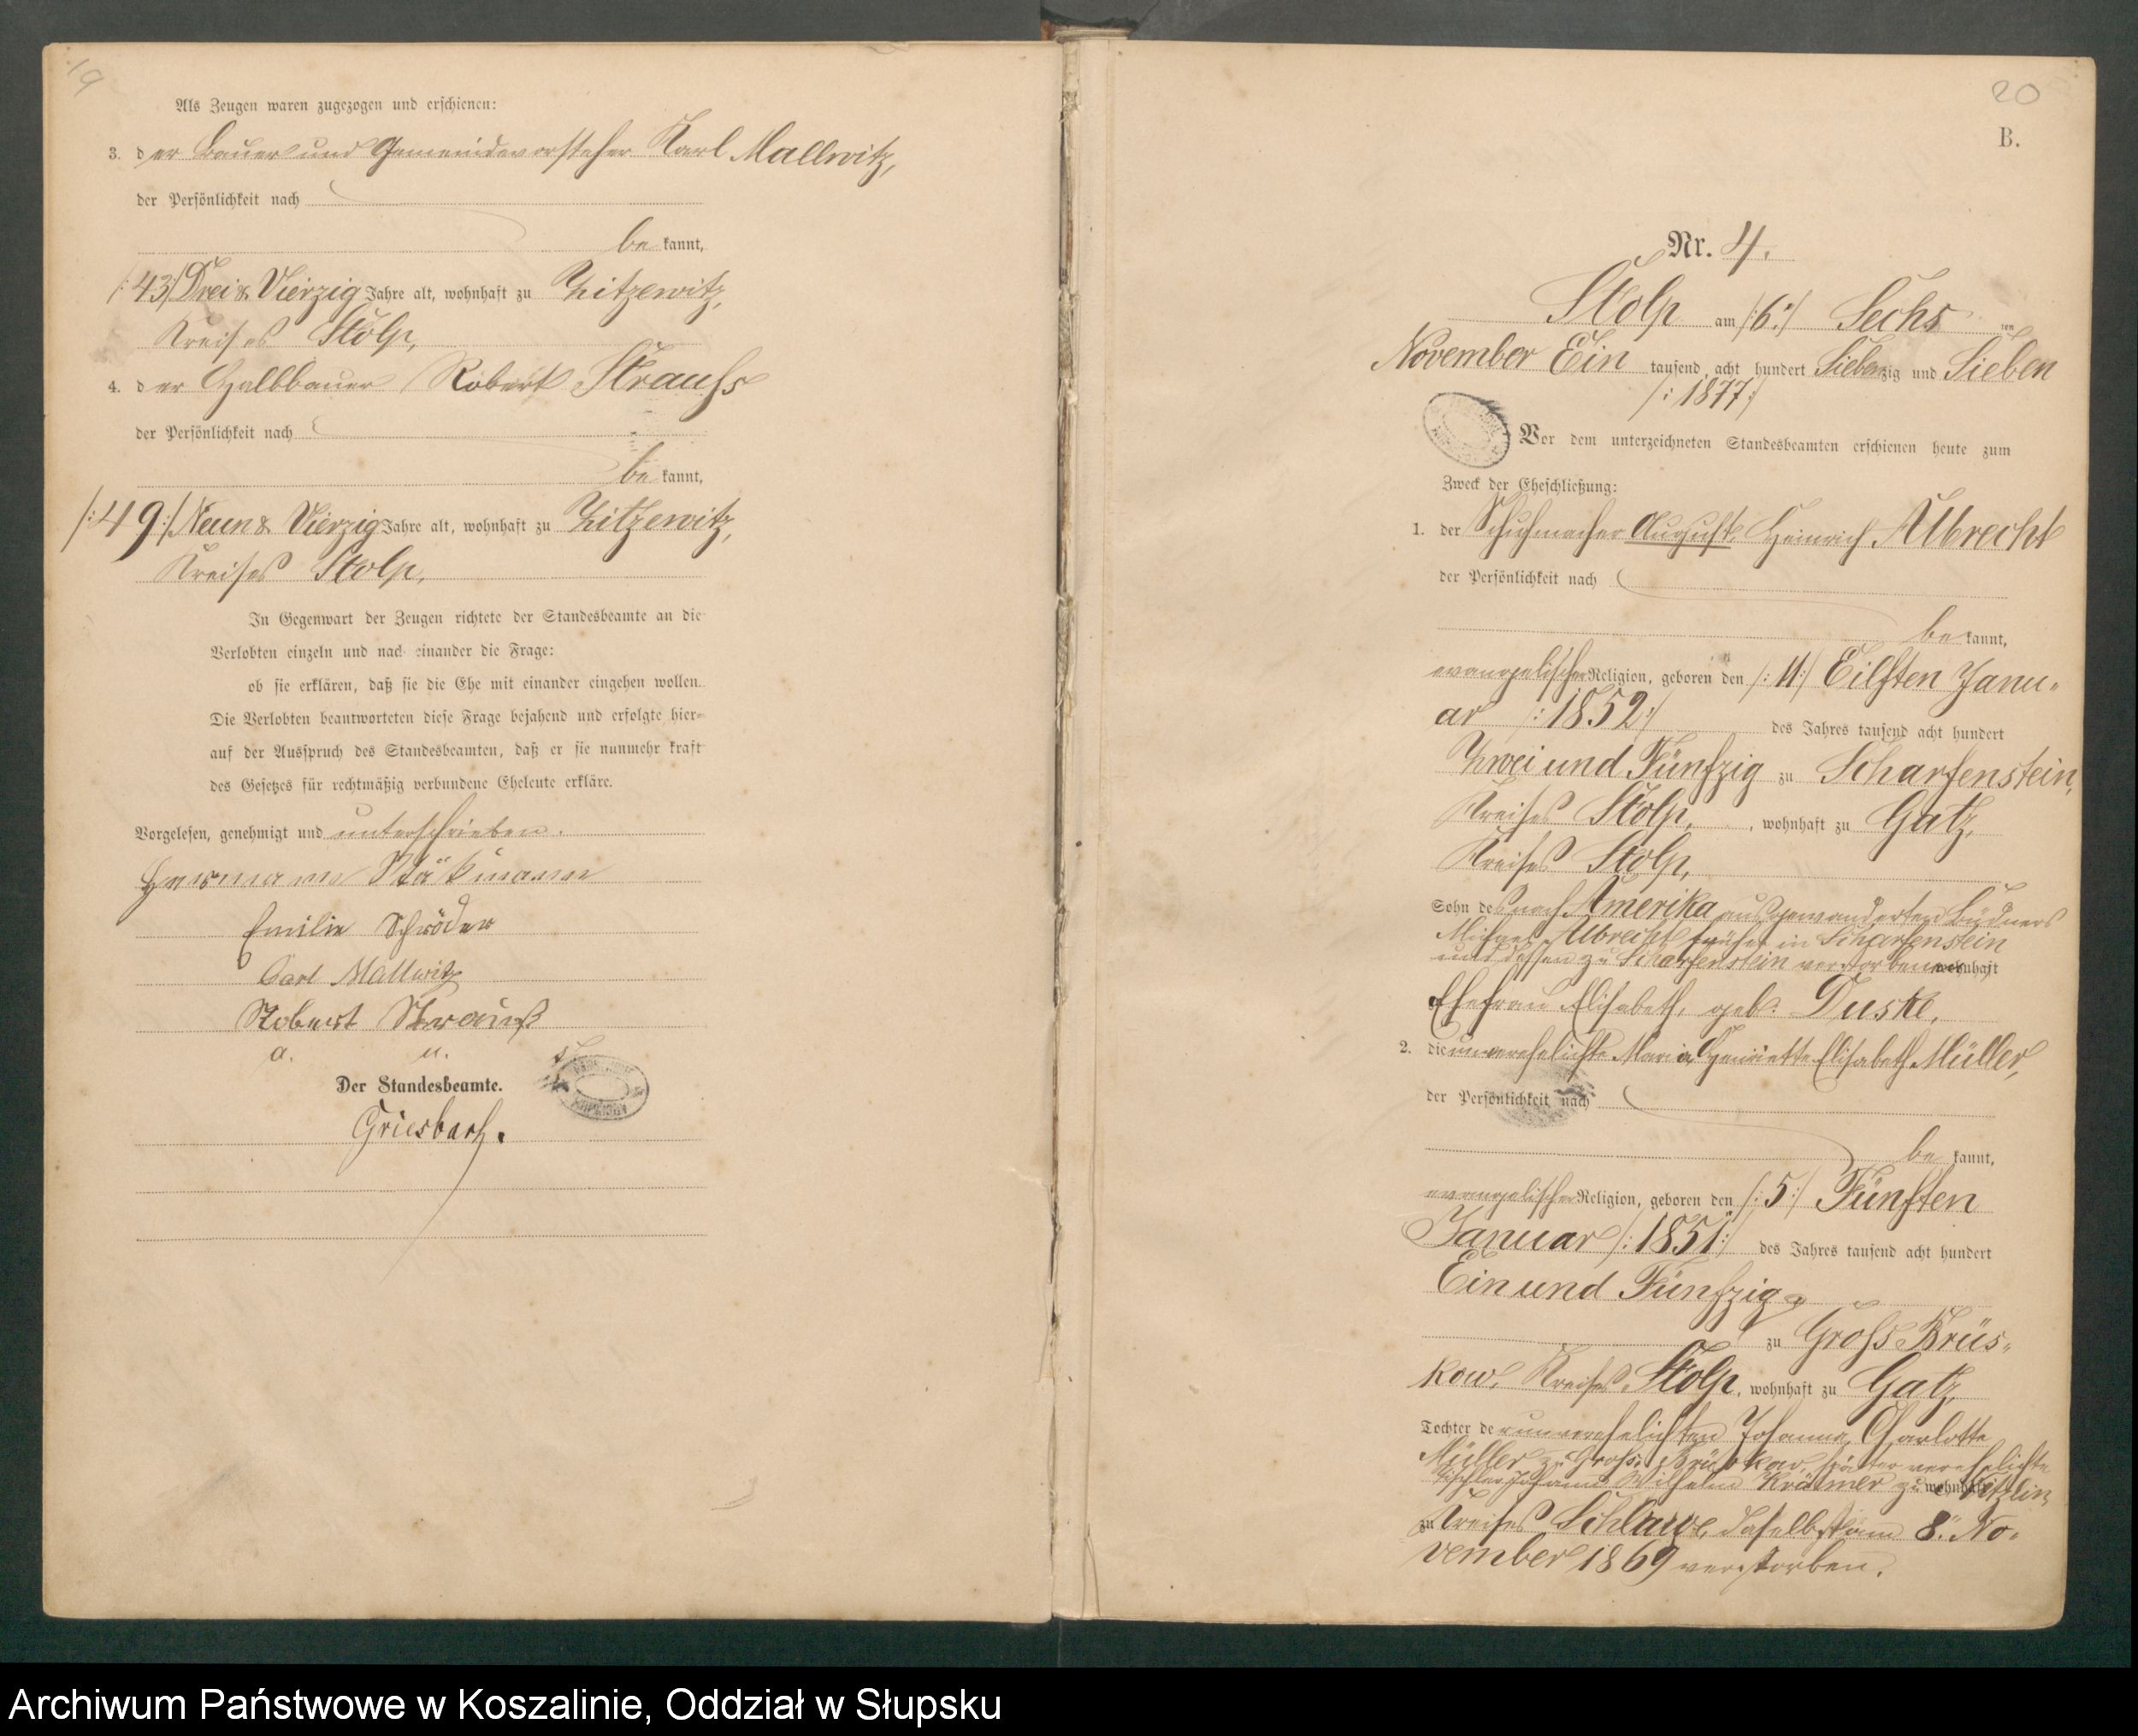 19
Als Zeugen waren zugezogen und erschienen:
3. der Bauer und Gemeindevorsteher Karl Mallwitz,
der Persönlichkeit nach
bekannt,
/:43:/ Drei & Vierzig Jahre alt, wohnhaft zu Zitzewitz,
Kreises Stolp,
4. der Halbbauer Robert Strauss
der Persönlichkeit nach
bekannt,
/:49:/ Neun & Vierzig Jahre alt, wohnhaft zu Zitzewitz,
Kreises Stolp.
In Gegenwart der Zeugen richtete der Standesbeamte an die
Verlobten einzeln und nach einander die Frage:
ob sie erklären, daß sie die Ehe mit einander eingehen wollen.
Die Verlobten beantworteten diese Frage bejahend und erfolgte hier-
auf der Ausspruch des Standesbeamten, daß er sie nunmehr kraft
des Gesetzes für rechtmäßig verbundene Eheleute erkläre.
Vorgelesen, genehmigt und unterschrieben.
Hermann
Emilie Schröder
Carl Mallwitz
Robert Strauß
a. u. s.
Der Standesbeamte.
Griesbach.
20
B.
Nr. 4.
Stolp am /:6:/ Sechsten
November Ein tausend acht hundert Siebenzig und Sieben
/:1877:/
Vor dem unterzeichneten Standesbeamten erschienen heute zum
Zweck der Eheschließung:
1. der Schuhmacher August Heinrich Albrecht
der Persönlichkeit nach
bekannt,
evangelischer Religion, geboren den /:11:/ Eilften Janu-
ar /:1852:/ des Jahres tausend acht hundert
Zwei und Fünfzig zu Scharfenstein,
Kreises Stolp, wohnhaft zu Gatz,
Kreises Stolp,
Sohn des nach Amerika ausgewanderten Büdners
Michael Albrecht früher in Scharfenstein
und dessen zu Scharfenstein verstorbenen wohnhaft
Ehefrau Elisabeth, geb. Duske,
2. die unverehelichte Maria Henriette Elisabeth Müller,
der Persönlichkeit nach
bekannt,
evangelischer Religion, geboren den /:5:/ Fünften
Januar /:1851:/ des Jahres tausend acht hundert
Ein und Fünfzig
zu Gross Brüs-
kow, Kreises Stolp, wohnhaft zu Gatz,
Tochter der unverehelichten Johanne Charlotte
Müller zu Gross Brüskow, später verehelichte
Tischler Johann Wilhelm Krämer zu wohnhaft
zu Kreises Schlawe, daselbst am 8. No-
vember 1869 verstorben.
Archiwum Państwowe w Koszalinie, Oddział w Słupsku